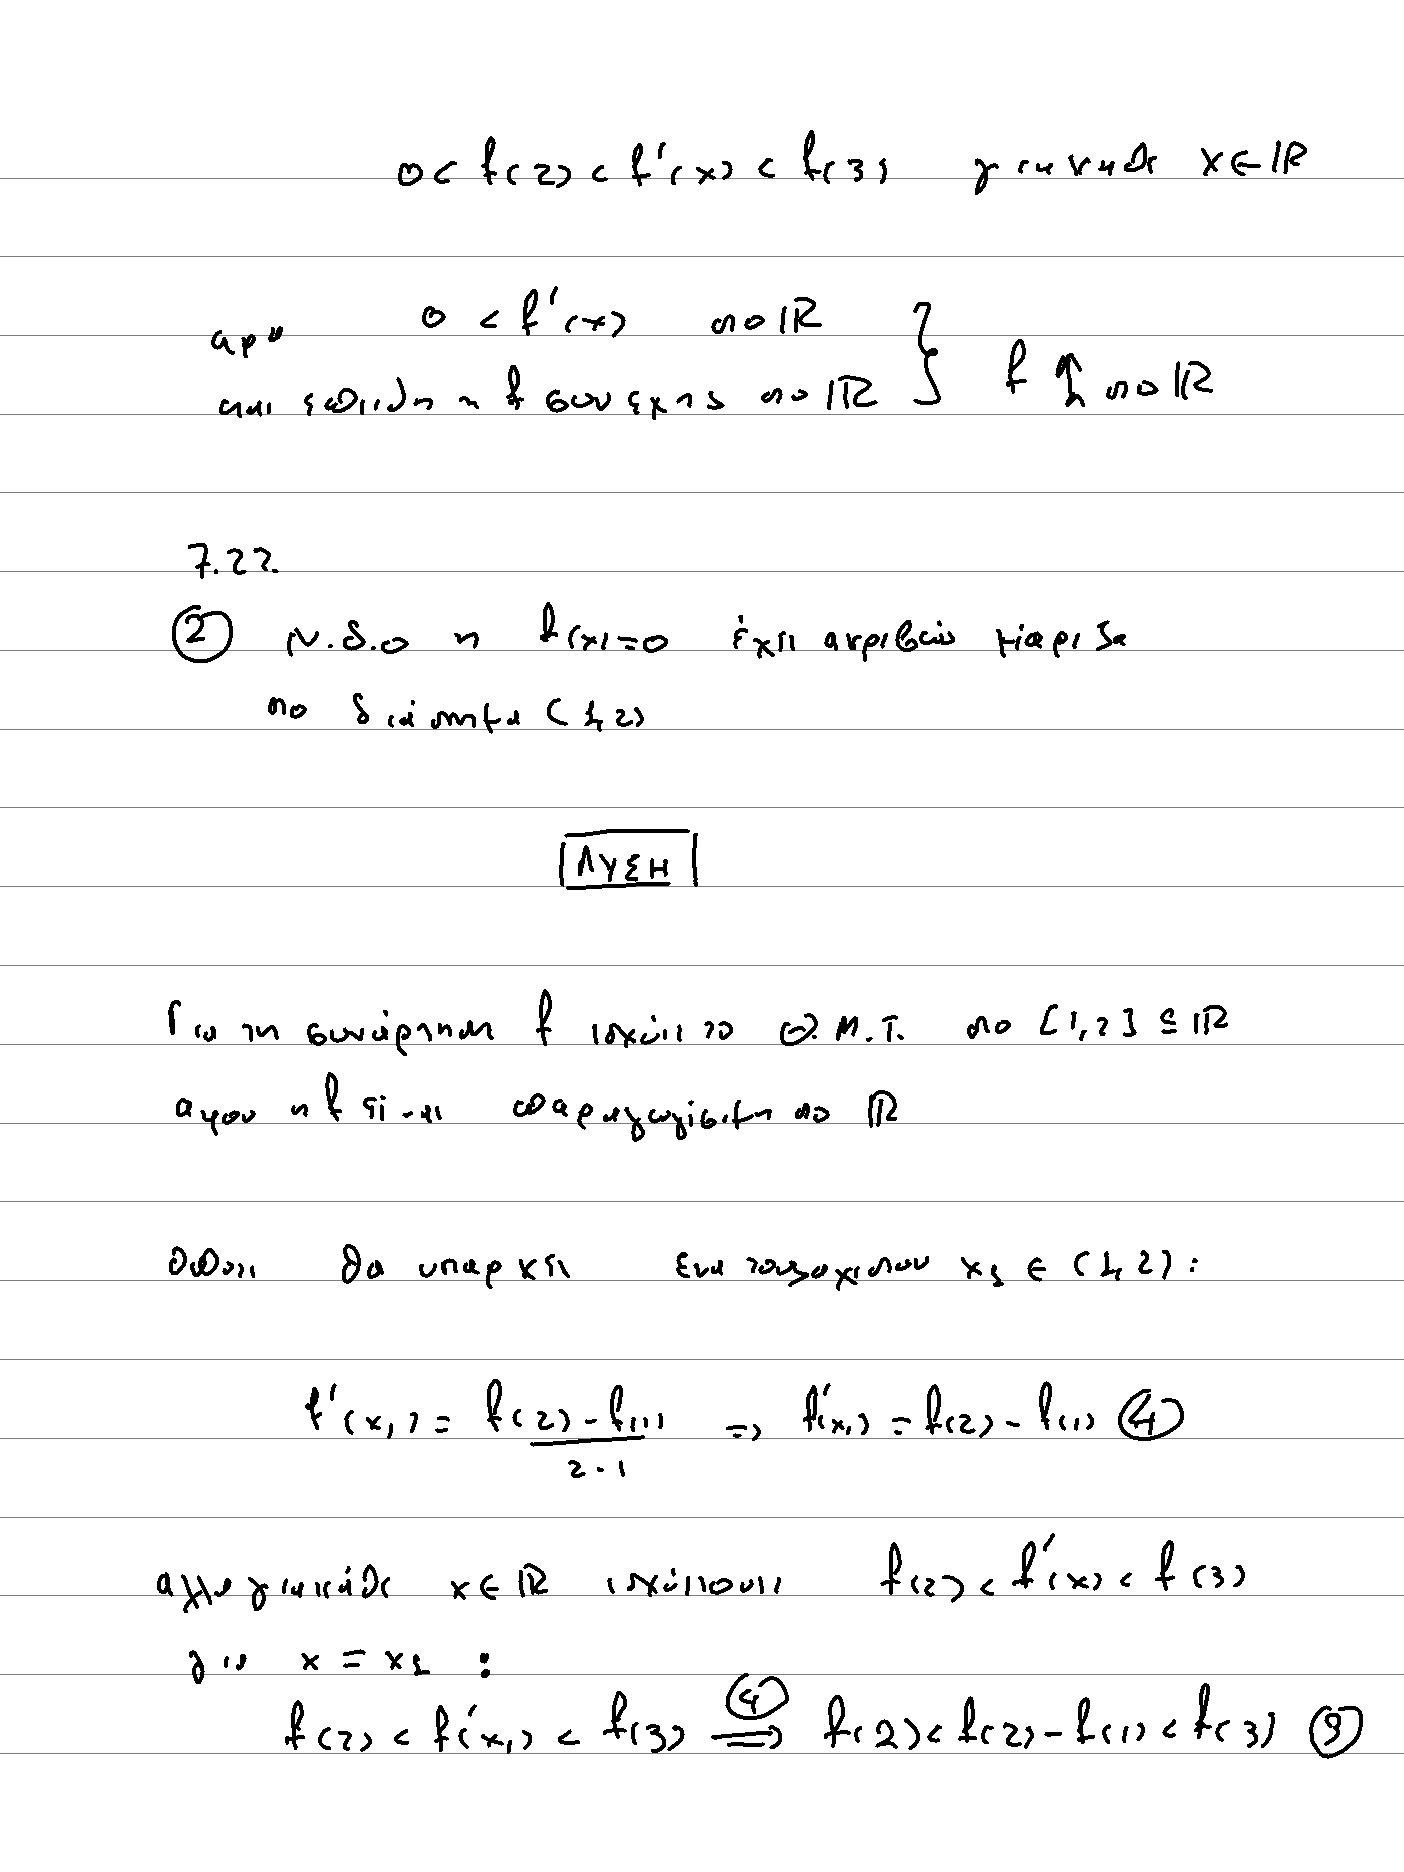 0 < f(2) < f'(x) < f(3) για κάθε x ∈ ℝ
αρα 0 < f'(x) στο ℝ } f ↑ στο ℝ
και επειδη η f συνεχης στο ℝ
7.22.
② Ν.δ.ο η f(x)=0 έχει ακριβώς μία ριζα
στο διάστημα (1,2)
ΛΥΣΗ
Για τη συνάρτηση f ισχύει το Θ.Μ.Τ. στο [1,2] ⊆ ℝ
αφου η f είναι παραγωγίσιμη στο ℝ
οποτε θα υπαρχει ενα τουλαχιστον x₁ ∈ (1,2) :
f'(x₁) = f(2)-f(1) / 2-1 => f'(x₁) = f(2) - f(1) ④
αλλα για κάθε x ∈ ℝ ισχύει οτι f(2) < f'(x) < f(3)
για x = x₁ :
f(2) < f'(x₁) < f(3) ④⟹ f(2) < f(2) - f(1) < f(3)